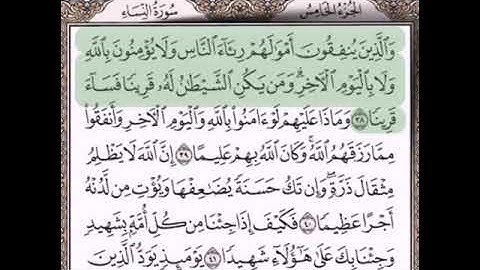 الجزء الخامس
سورة النساء
وَالَّذِينَ يُنفِقُونَ أَمْوَالَهُمْ رِئَاءَ النَّاسِ وَلَا يُؤْمِنُونَ بِاللَّهِ
وَلَا بِالْيَوْمِ الْآخِرِ ۗ وَمَن يَكُنِ الشَّيْطَانُ لَهُ قَرِينًا فَسَاءَ
قَرِينًا ٣٨ وَمَاذَا عَلَيْهِمْ لَوْ ءَامَنُوا بِاللَّهِ وَالْيَوْمِ الْآخِرِ وَأَنفَقُوا
مِمَّا رَزَقَهُمُ اللَّهُ ۚ وَكَانَ اللَّهُ بِهِمْ عَلِيمًا ٣٩ إِنَّ اللَّهَ لَا يَظْلِمُ
مِثْقَالَ ذَرَّةٍ ۖ وَإِن تَكُ حَسَنَةً يُضَاعِفْهَا وَيُؤْتِ مِن لَّدُنْهُ
أَجْرًا عَظِيمًا ٤٠ فَكَيْفَ إِذَا جِئْنَا مِن كُلِّ أُمَّةٍ بِشَهِيدٍ
وَجِئْنَا بِكَ عَلَىٰ هَٰؤُلَاءِ شَهِيدًا ٤١ يَوْمَئِذٍ يَوَدُّ الَّذِينَ